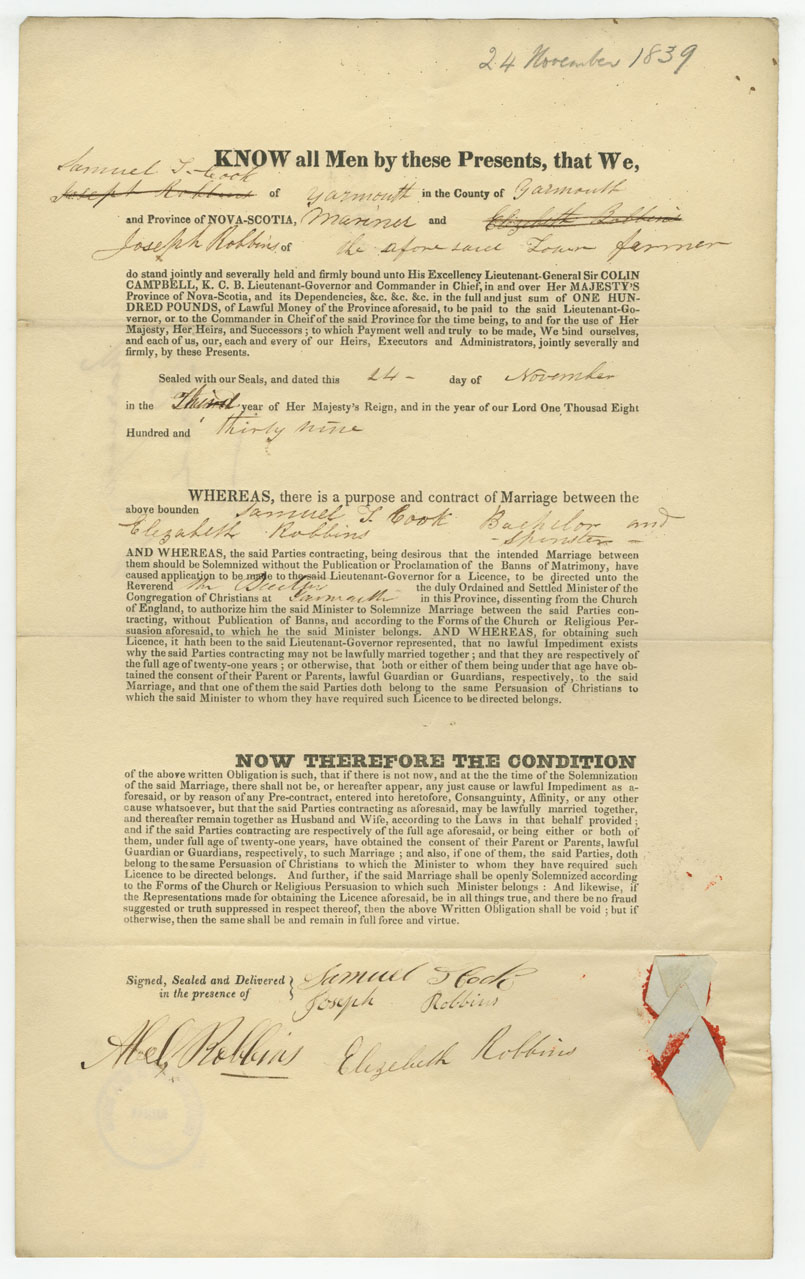 24 November 1839
KNOW all Men by these Presents, that We,
Samuel T. Cook
Joseph Robbins of Yarmouth in the County of Yarmouth
and Province of NOVA-SCOTIA, Mariner and Elizabeth Robbins
Joseph Robbins of the afore said Town farmer
do stand jointly and severally held and firmly bound unto His Excellency Lieutenant-General Sir COLIN
CAMPBELL, K. C. B. Lieutenant-Governor and Commander in Chief, in and over Her MAJESTY'S
Province of Nova-Scotia, and its Dependencies, &c. &c. &c. in the full and just sum of ONE HUN-
DRED POUNDS, of Lawful Money of the Province aforesaid, to be paid to the said Lieutenant-Go-
vernor, or to the Commander in Cheif of the said Province for the time being, to and for the use of Her
Majesty, Her Heirs, and Successors ; to which Payment well and truly to be made, We bind ourselves,
and each of us, our, each and every of our Heirs, Executors and Administrators, jointly severally and
firmly, by these Presents.
Sealed with our Seals, and dated this 24 - day of November
in the Third year of Her Majesty's Reign, and in the year of our Lord One Thousad Eight
Hundred and thirty nine
WHEREAS, there is a purpose and contract of Marriage between the
above bounden Samuel T. Cook Bachelor and
Elizabeth Robbins - Spinster -
AND WHEREAS, the said Parties contracting, being desirous that the intended Marriage between
them should be Solemnized without the Publication or Proclamation of the Banns of Matrimony, have
caused application to be made to the said Lieutenant-Governor for a Licence, to be directed unto the
Reverend the duly Ordained and Settled Minister of the
Congregation of Christians at Yarmouth in this Province, dissenting from the Church
of England, to authorize him the said Minister to Solemnize Marriage between the said Parties con-
tracting, without Publication of Banns, and according to the Forms of the Church or Religious Per-
suasion aforesaid, to which he the said Minister belongs. AND WHEREAS, for obtaining such
Licence, it hath been to the said Lieutenant-Governor represented, that no lawful Impediment exists
why the said Parties contracting may not be lawfully married together ; and that they are respectively of
the full age of twenty-one years ; or otherwise, that both or either of them being under that age have ob-
tained the consent of their Parent or Parents, lawful Guardian or Guardians, respectively, to the said
Marriage, and that one of them the said Parties doth belong to the same Persuasion of Christians to
which the said Minister to whom they have required such Licence to be directed belongs.
NOW THEREFORE THE CONDITION
of the above written Obligation is such, that if there is not now, and at the the time of the Solemnization
of the said Marriage, there shall not be, or hereafter appear, any just cause or lawful Impediment as a-
foresaid, or by reason of any Pre-contract, entered into heretofore, Consanguinty, Affinity, or any other
cause whatsoever, but that the said Parties contracting as aforesaid, may be lawfully married together,
and thereafter remain together as Husband and Wife, according to the Laws in that behalf provided ;
and if the said Parties contracting are respectively of the full age aforesaid, or being either or both of
them, under full age of twenty-one years, have obtained the consent of their Parent or Parents, lawful
Guardian or Guardians, respectively, to such Marriage ; and also, if one of them, the said Parties, doth
belong to the same Persuasion of Christians to which the Minister to whom they have required such
Licence to be directed belongs. And further, if the said Marriage shall be openly Solemnized according
to the Forms of the Church or Religious Persuasion to which such Minister belongs : And likewise, if
the Representations made for obtaining the Licence aforesaid, be in all things true, and there be no fraud
suggested or truth suppressed in respect thereof, then the above Written Obligation shall be void ; but if
otherwise, then the same shall be and remain in full force and virtue.
Signed, Sealed and Delivered } Samuel T Cook
in the presence of Joseph Robbins
Abel Robbins Elizabeth Robbins